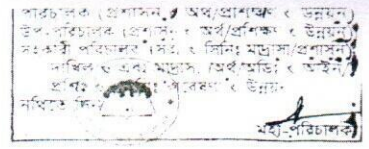 পরিচালক (প্রশাসন ও অর্থ/প্রশিক্ষণ ও উন্নয়ন)
উপ-পরিচালক (প্রশাসন ও অর্থ/প্রশিক্ষণ ও উন্নয়ন)
সহকারী পরিচালক (সিনিঃ মাদ্রাসা/প্রশাসন)
দাখিল ও এবঃ মাদ্রাসা, /অর্থ/অডিট ও আইন/
প্রশিঃ গবেষণা ও উন্নয়ন
নথিতে দিন।
মহা-পরিচালক